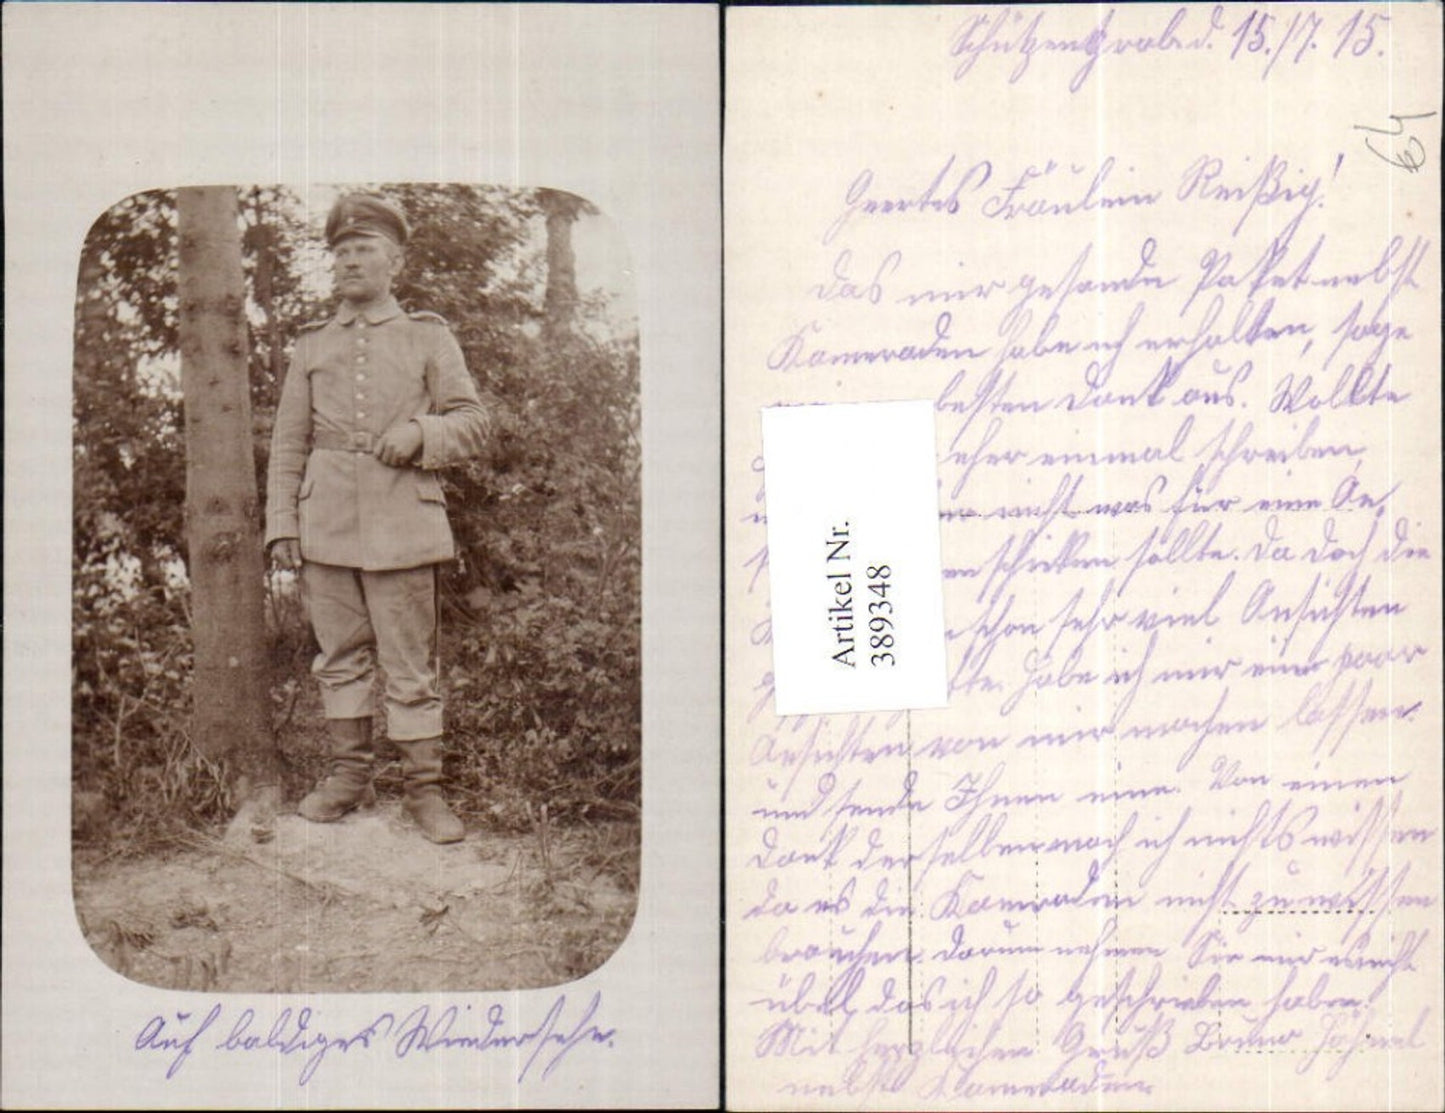 Auf baldiges Wiedersehn.
Schützengrab.d. 15./7. 15.
64
Geertes Fräulein Reißig!
Das mir gesande Paket nebst
Kameraden habe ich erhalten, sage
besten Dank aus. Wollte
eher einmal schreiben,
nicht was für eine An,
schicken sollte. Da doch die
schon sehr viel Ansichten
Habe ich mir ein paar
Ansichten von mir machen lassen
und sende Ihnen eine. Von einen
Dank derselben mach ich nichts wissen
da es die Kameraden nicht zu wissen
brauchen. Darum nehmen Sie mir nicht
übel das ich so geschrieben habe.
Mit herzlichen Gruß Bruno
nebst Kameraden
Artikel Nr.
389348